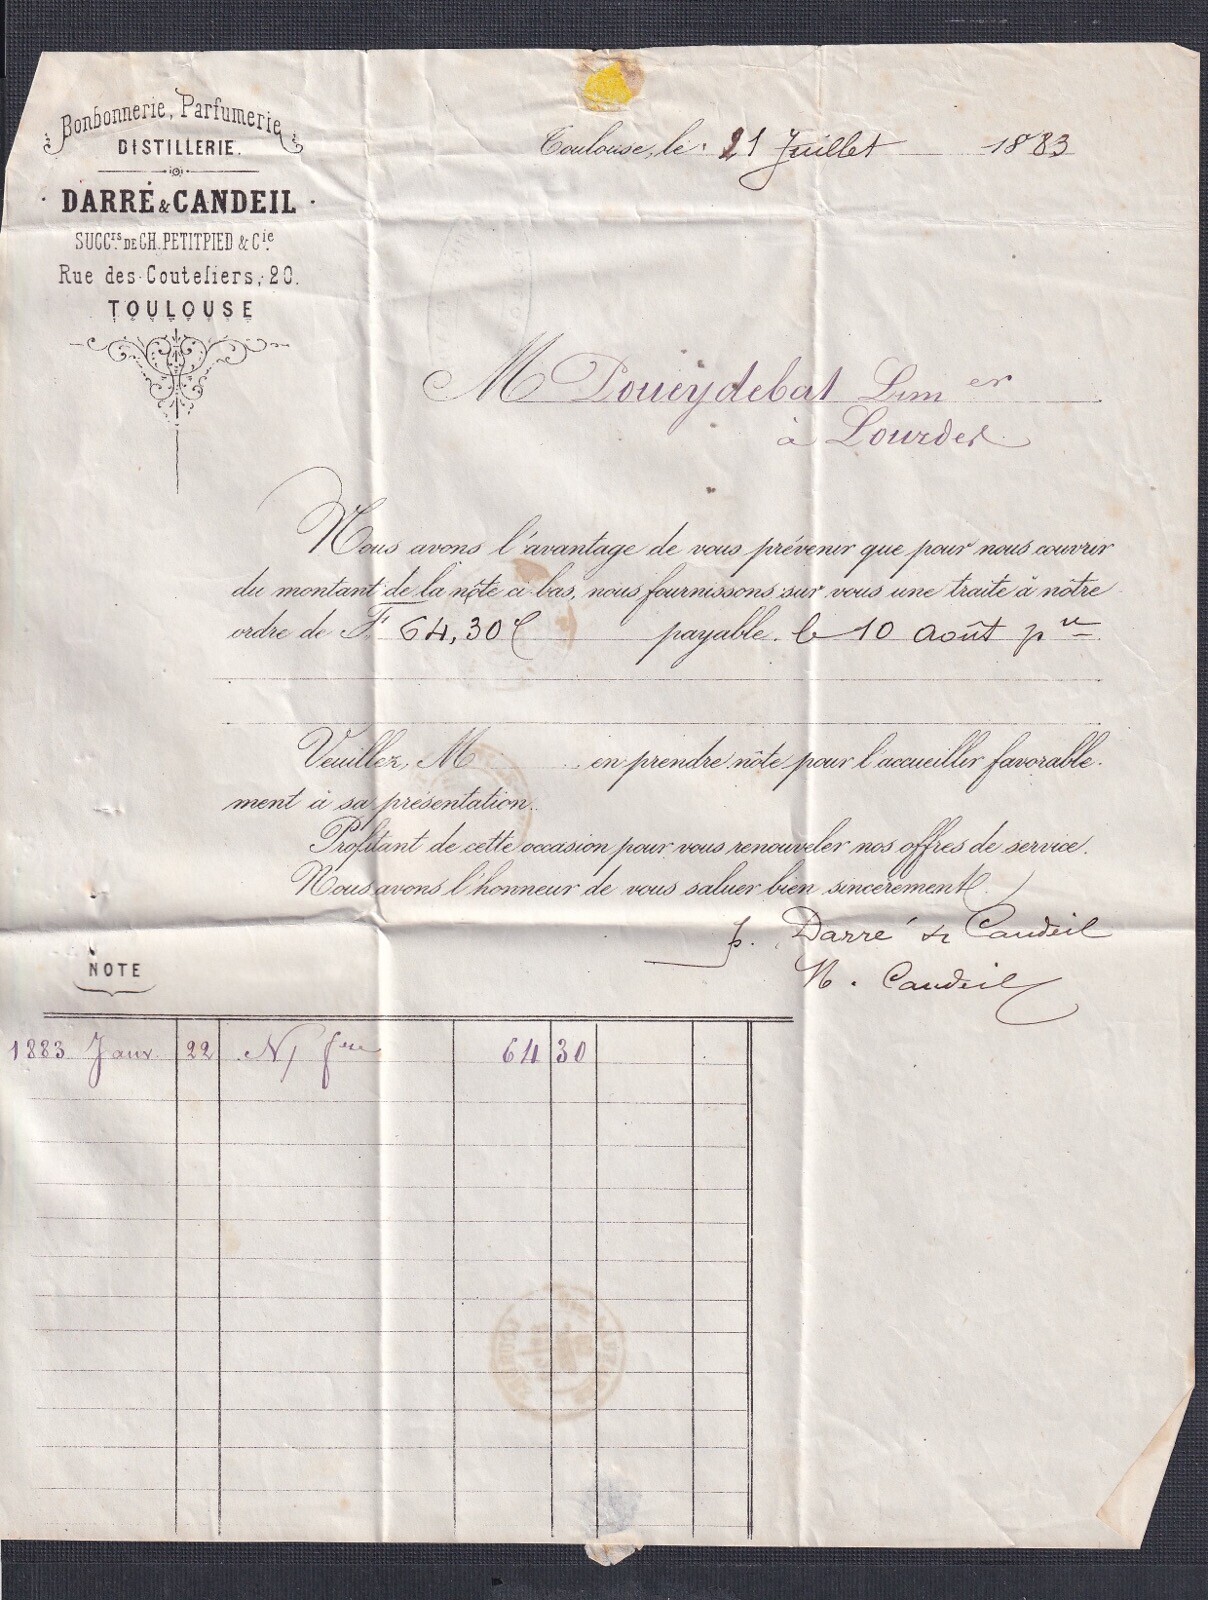 Bonbonnerie, Parfumerie
DISTILLERIE.
DARRÉ & CANDEIL
SUCCrs DE CH. PETITPIED & Cie
Rue des Couteliers, 20.
TOULOUSE
Toulouse, le 21 Juillet 1883
M Poueydebat Limer
à Lourdes
Nous avons l'avantage de vous prévenir que pour nous couvrir
du montant de la nôte ci bas, nous fournissons sur vous une traite à nôtre
ordre de F. 64,30 c payable le 10 août pn
Veuillez, M en prendre nôte pour l'accueillir favorable-
ment à sa présentation.
Profitant de cette occasion pour vous renouveler nos offres de service.
Nous avons l'honneur de vous saluer bien sincèrement.
p. Darré & Candeil
N. Candeil
NOTE
1883 Janv. 22 N/ fre 64 30